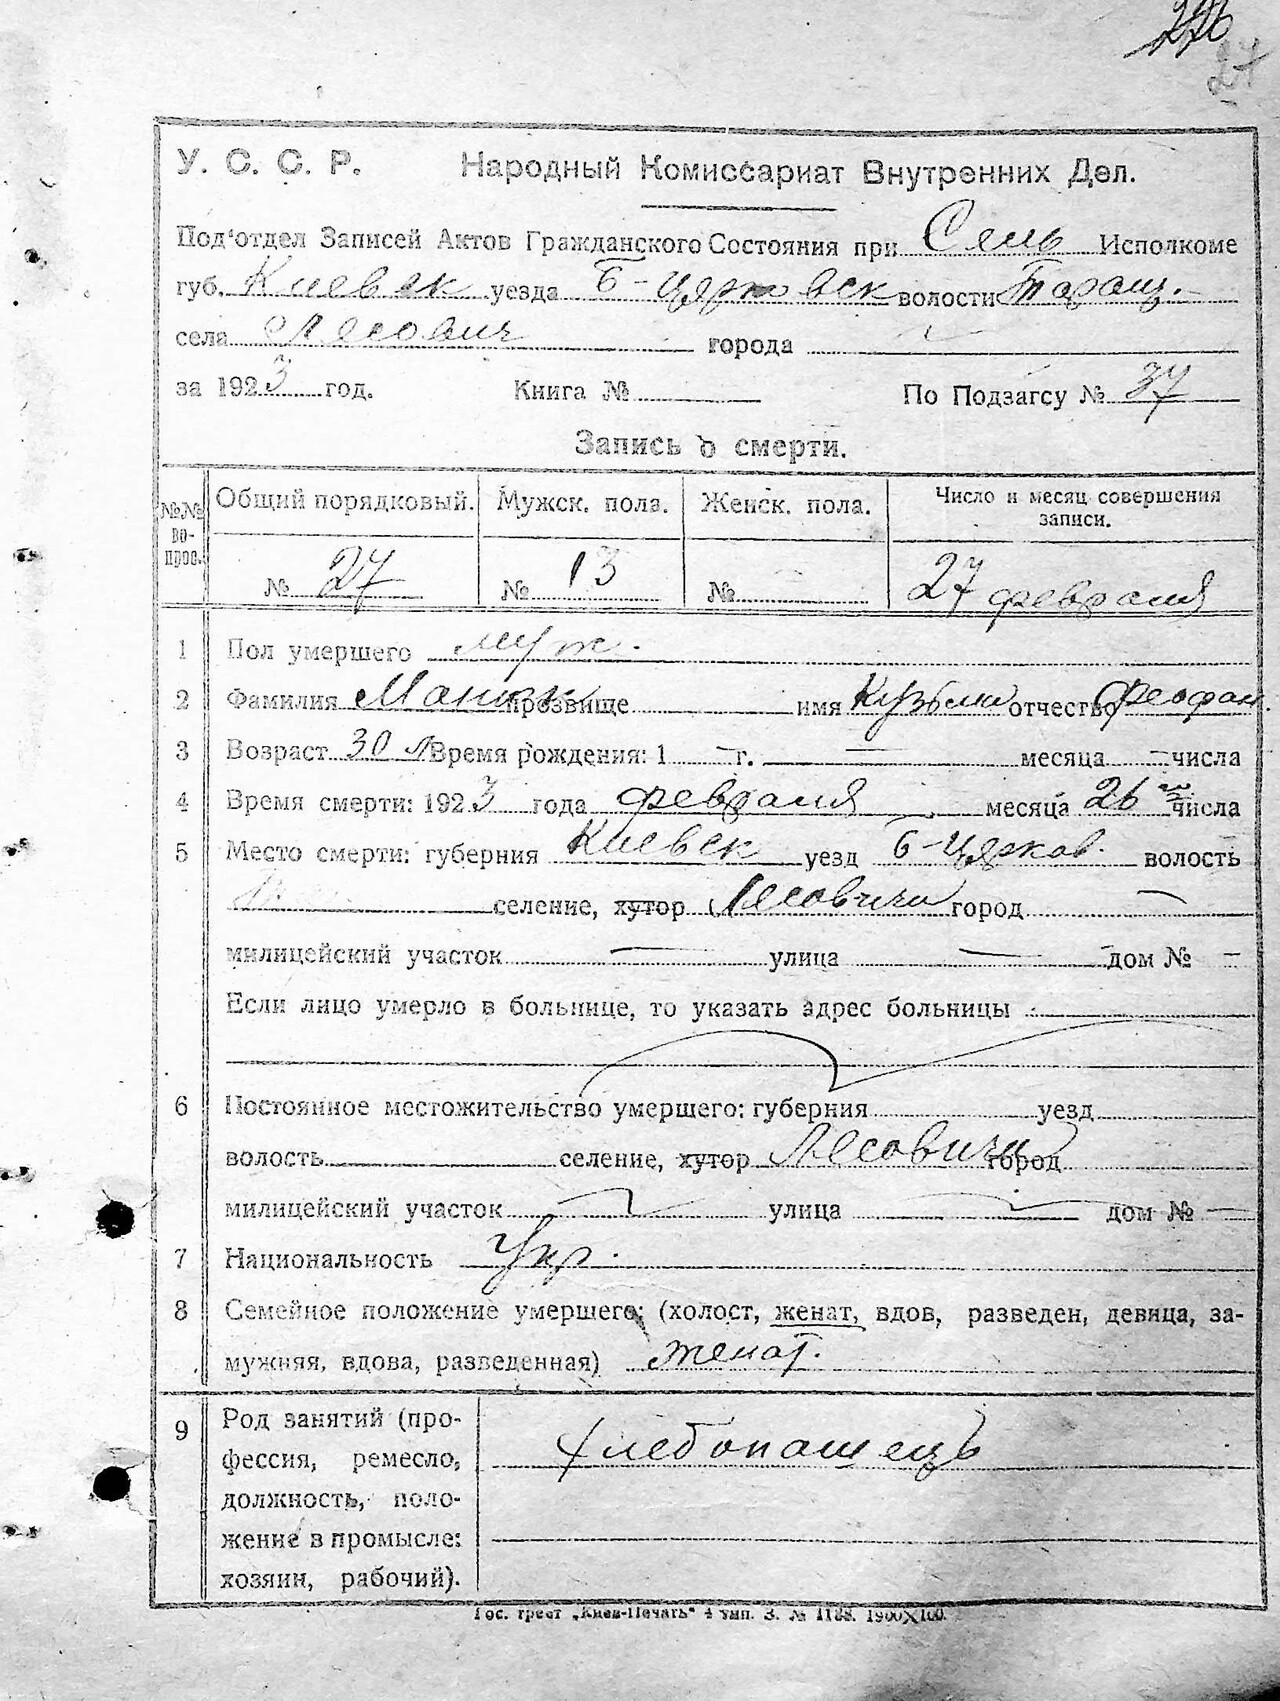 226
27
У. С. С. Р. Народный Комиссариат Внутренних Дел.
Под'отдел Записей Актов Гражданского Состояния при Сель Исполкоме
губ. Киевск уезда Б-Церковск волости Таращ.
села Лесович города
за 1923 год. Книга № По Подзагсу № 37
Запись о смерти.
№№ вопрос. Общий порядковый. Мужск. пола. Женск. пола. Число и месяц совершения записи.
№ 27 № 13 № 27 февраля
1 Пол умершего муж.
2 Фамилия прозвище имя Кузьма отчество Феофан.
3 Возраст 30 л Время рождения: 1 г. месяца числа
4 Время смерти: 1923 года февраля месяца 26 го числа
5 Место смерти: губерния Киевск уезд Б-Церков. волость
селение, хутор Лесовичи город
милицейский участок улица дом №
Если лицо умерло в больнице, то указать адрес больницы
6 Постоянное местожительство умершего: губерния уезд
волость селение, хутор Лесовичи город
милицейский участок улица дом №
7 Национальность Укр.
8 Семейное положение умершего: (холост, женат, вдов, разведен, девица, за-
мужняя, вдова, разведенная) женат.
9 Род занятий (про-
фессия, ремесло, хлебопашець
должность, поло-
жение в промысле:
хозяин, рабочий).
Гос. трест „Киев-Печать" 4 тип. З. № 1138. 1900X100.